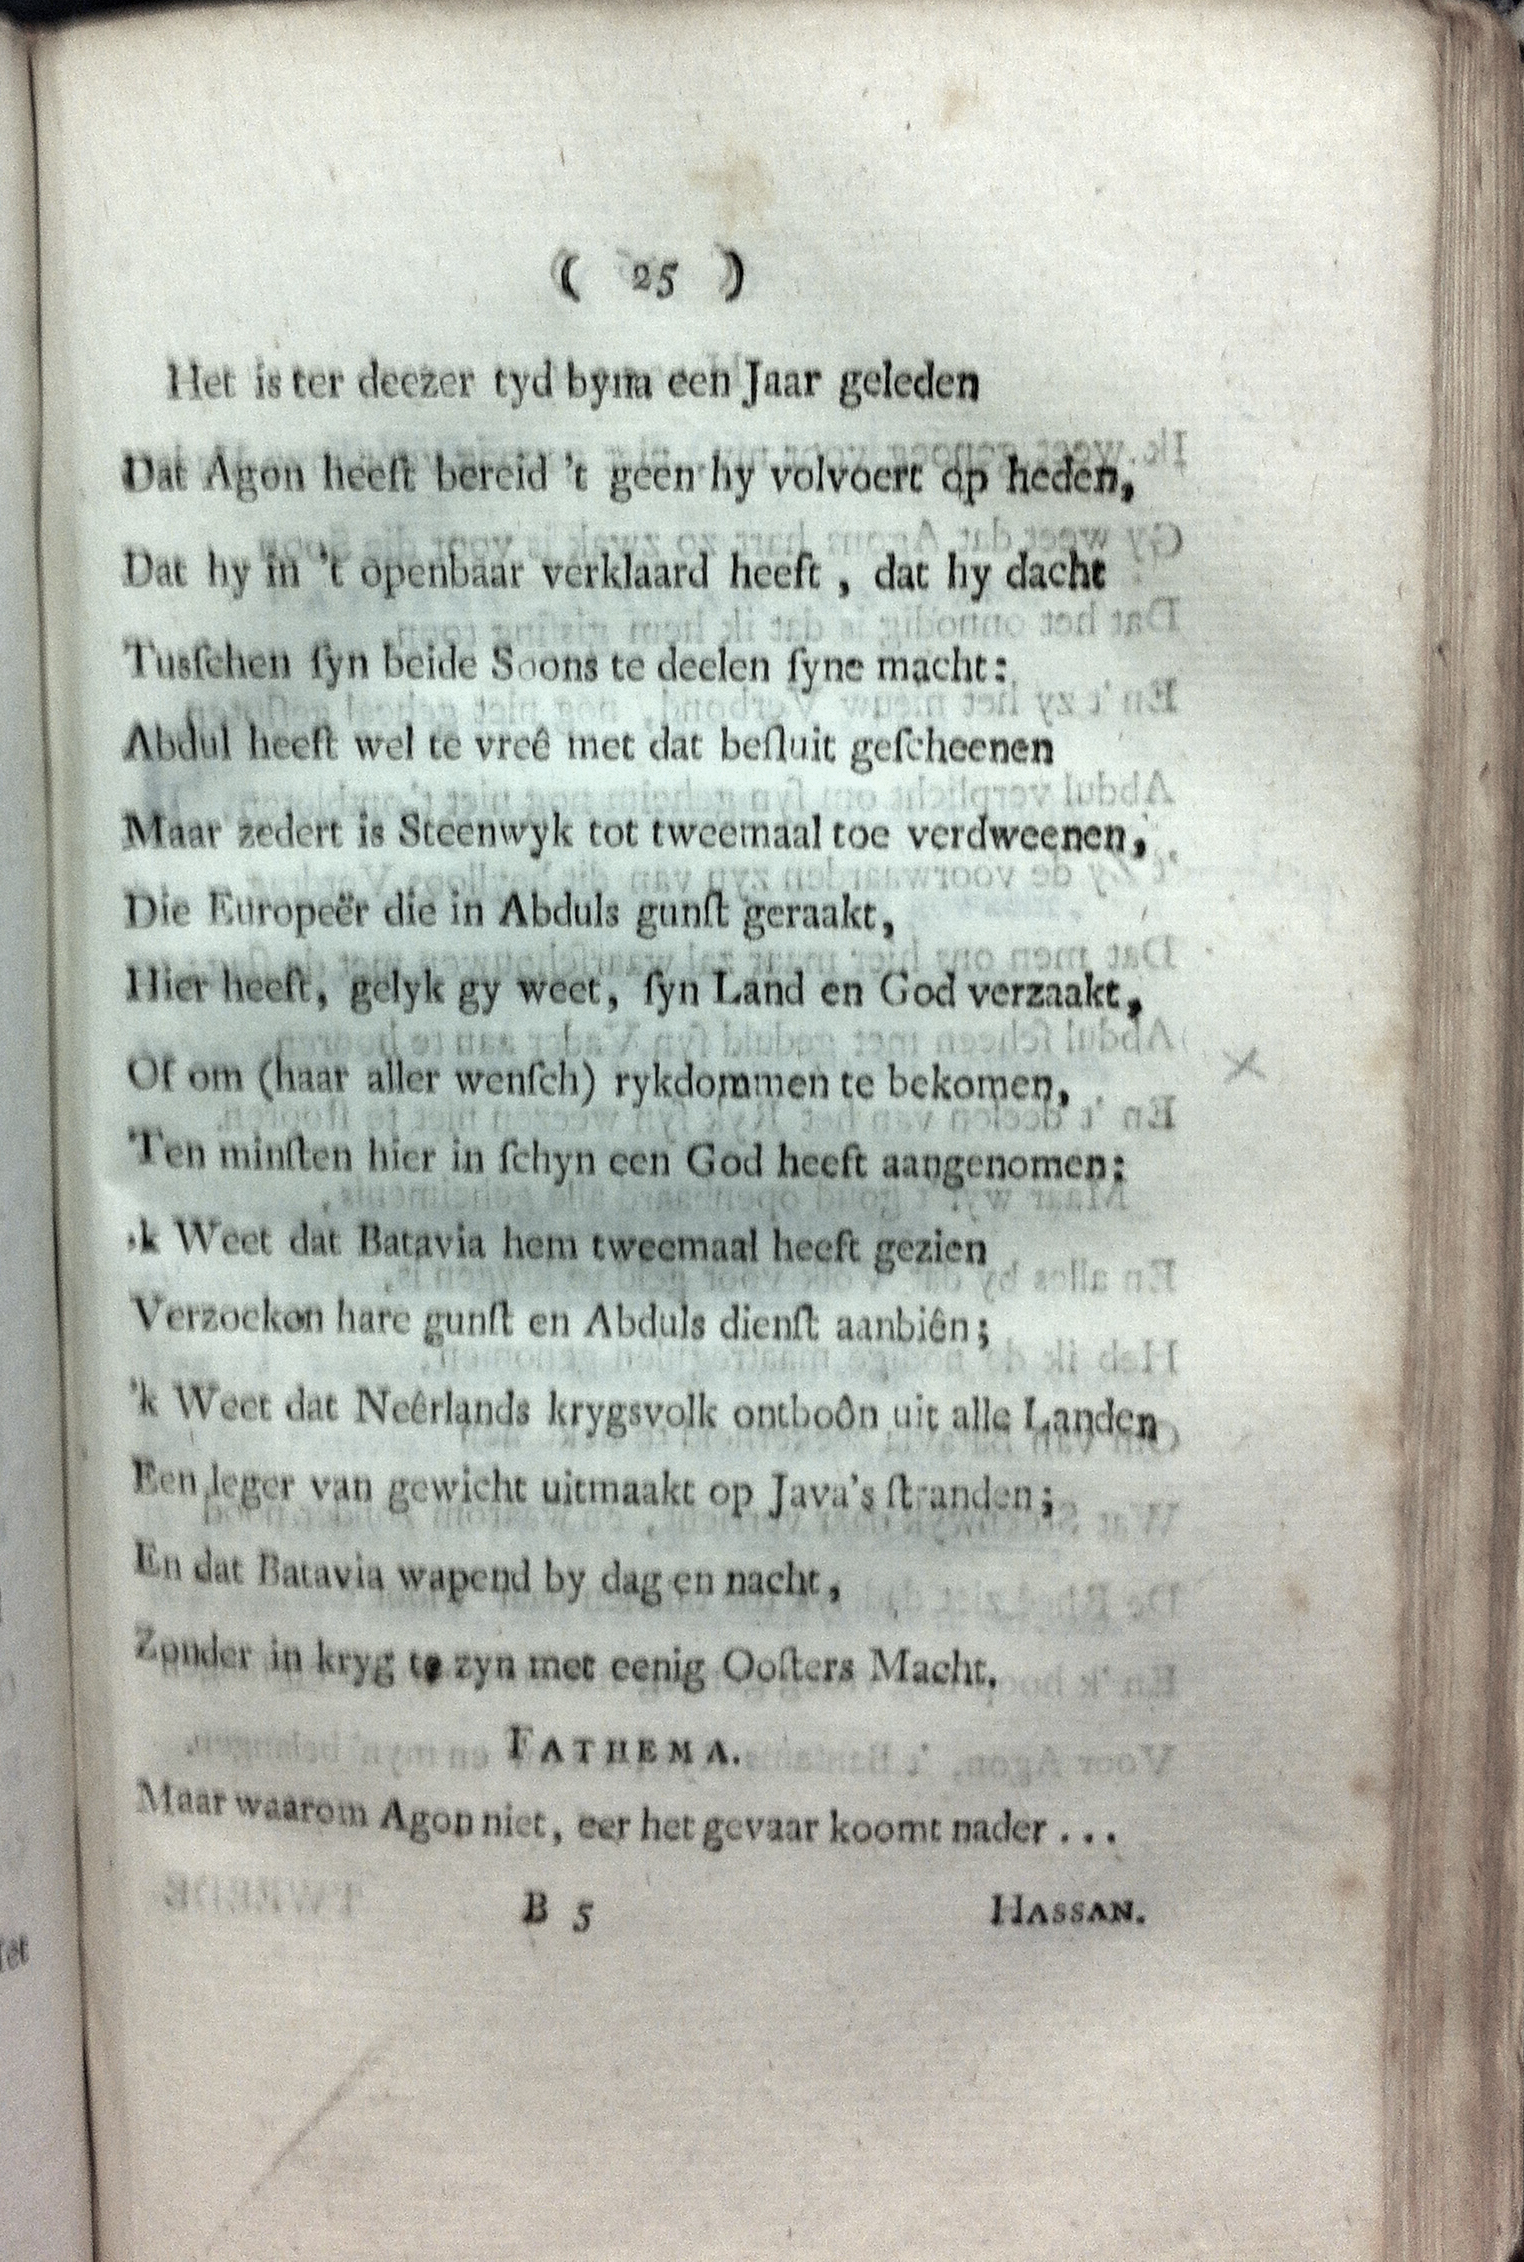 ( 25 )
Het is ter deezer tyd byna een Jaar geleden
Dat Agon heeft bereid 't geen hy volvoert op heden,
Dat hy in 't openbaar verklaard heeft, dat hy dacht
Tusſchen ſyn beide Soons te deelen ſyne macht:
Abdul heeft wel te vreê met dat beſluit geſcheenen
Maar zedert is Steenwyk tot tweemaal toe verdweenen,
Die Europeër die in Abduls gunſt geraakt,
Hier heeft, gelyk gy weet, ſyn Land en God verzaakt,
Of om (haar aller wenſch) rykdommen te bekomen,
Ten minſten hier in ſchyn een God heeft aangenomen;
'k Weet dat Batavia hem tweemaal heeft gezien
Verzoeken hare gunſt en Abduls dienſt aanbiên;
'k Weet dat Neêrlands krygsvolk ontboôn uit alle Landen
Een leger van gewicht uitmaakt op Java's ſtranden;
En dat Batavia wapend by dag en nacht,
Zonder in kryg te zyn met eenig Ooſters Macht.
FATHEMA.
Maar waarom Agon niet, eer het gevaar koomt nader ...
B 5 HASSAN.